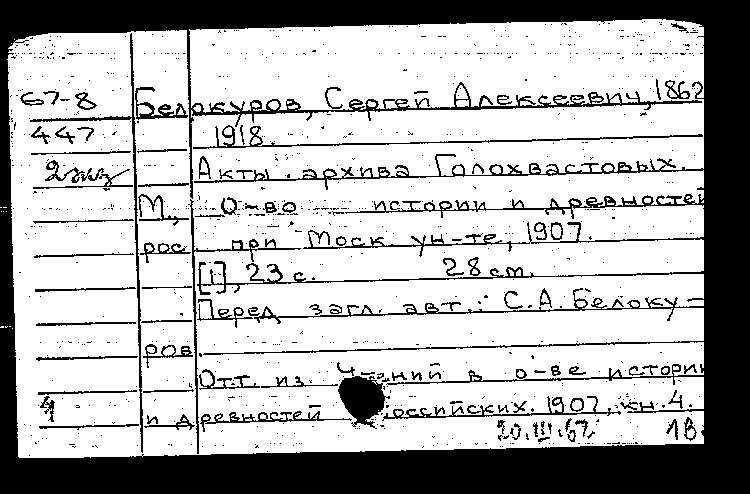 67-8 Белокуров, Сергей Алексеевич, 1862
447 1918.
2 экз Акты архива Голохвастовых.
М., О-во истории и древностей
рос. при Моск ун-те, 1907.
[1], 23 с. 28 см.
Перед загл. авт.: С.А. Белоку-
ров.
Отт. из Чтений в о-ве истории
и древностей оссийских. 1907, кн. 4.
20.III.67. 18